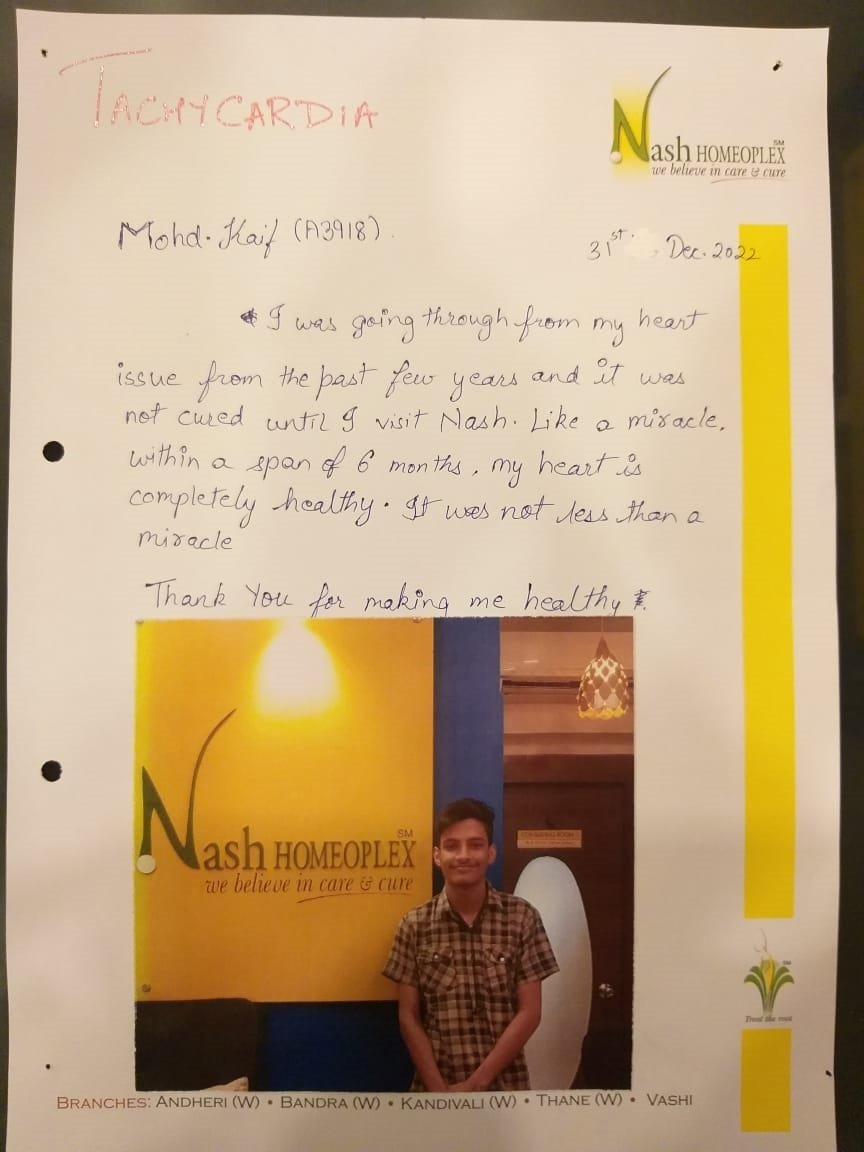 TACHYCARDIA
Nash HOMEOPLEX SM
we believe in care & cure
Mohd. Kaif (A3918).
31st Dec. 2022
I was going through from my heart
issue from the past few years and it was
not cured until I visit Nash. Like a miracle,
within a span of 6 months, my heart is
completely healthy. It was not less than a
miracle
Thank You for making me healthy
Nash HOMEOPLEX SM
we believe in care & cure
CONSULTING ROOM
SM
Treat the root
BRANCHES: ANDHERI (W) • BANDRA (W) • KANDIVALI (W) • THANE (W) • VASHI